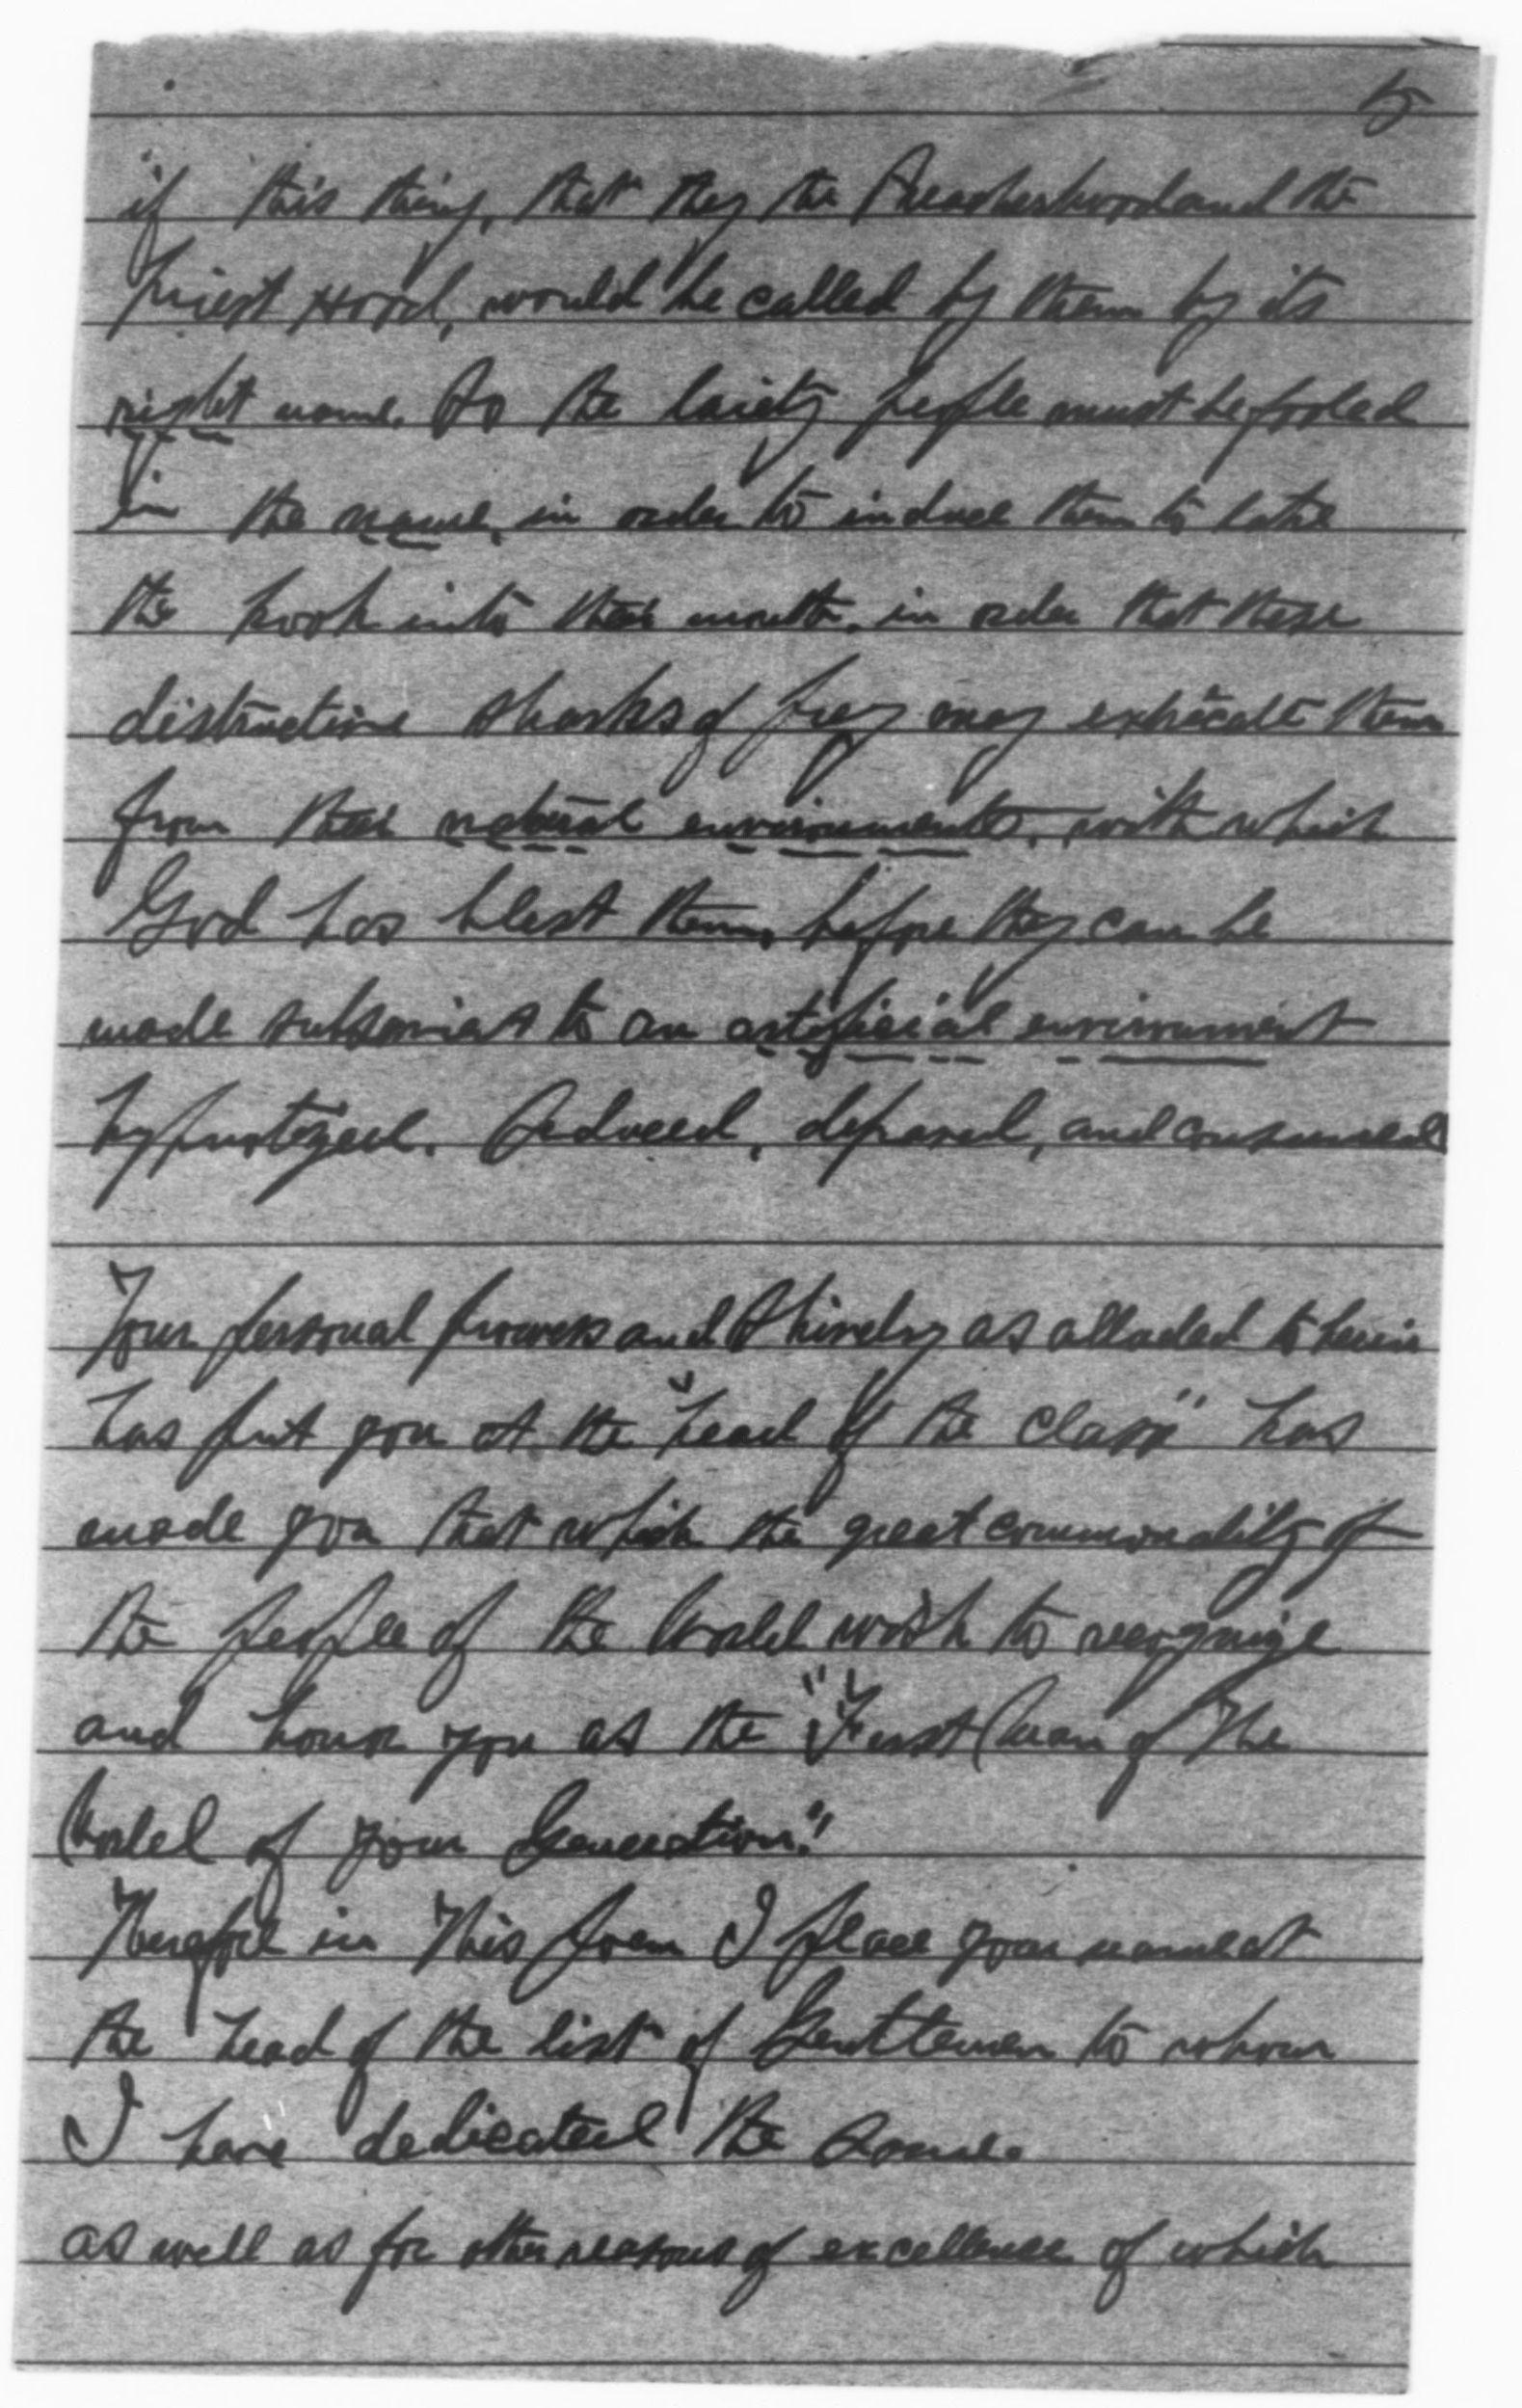 5
if this thing, that they the Preacherhood and the
Priest Hood, would be called by them by its
right name. So the laiety people must be fooled
in the name, in order to induce them to take
the hook into their mouth, in order that these
distructive sharks of prey may extricate them
from their natural environments, with which
God has blest them, before they can be
made subservient to an artificial environment
hypnotized. Seduced, depraved, and consumed
Your personal prowess and Shivelry as alluded to herein
has put you at the "head of the class" has
made you that which the great commonality of
the people of the World wish to recognize
and honor you as the "First Man of The
World of your Generation."
Therefore in This Poem I place your name at
the head of the list of Gentlemen to whom
I have dedicated the Same.
as well as for other reasons of excellence of which